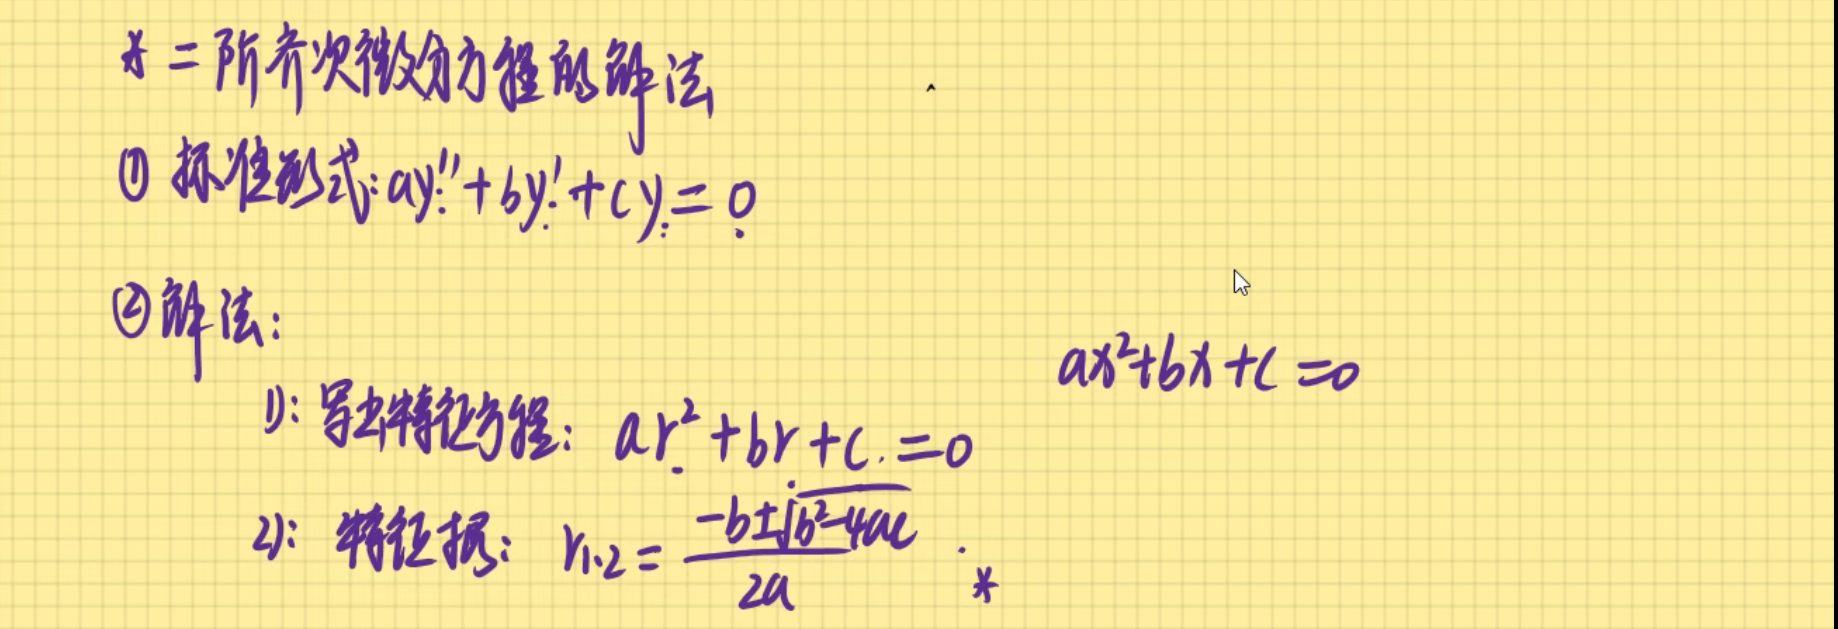 * 二阶齐次微分方程的解法
① 标准形式: ay''+by'+cy=0
② 解法:
ax²+bx+c=0
1): 写出特征方程: ar²+br+c=0
2): 特征根: r₁.₂ = (-b±√(b²-4ac))/(2a) *